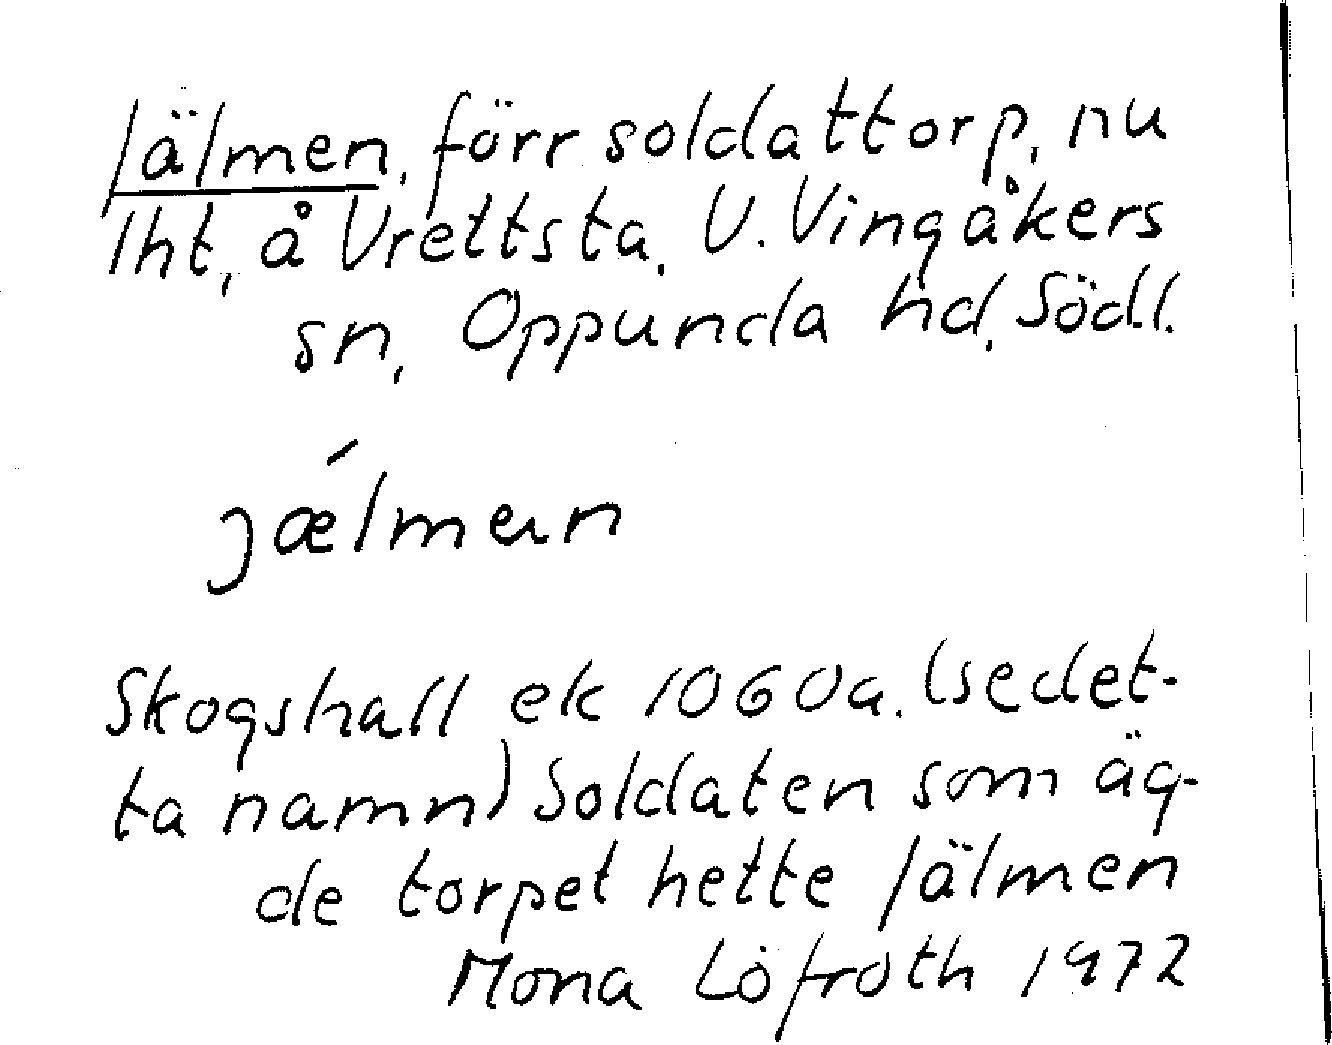 Jälmen, förr soldattorp, nu
lht, å Vrettsta, V. Vingåkers
sn, Oppunda hd, Södl.
jǽlmen
Skogshall ek 1060a. (se det-
ta namn) Soldaten som äg-
de torpet hette Jälmen
Mona Löfroth 1972